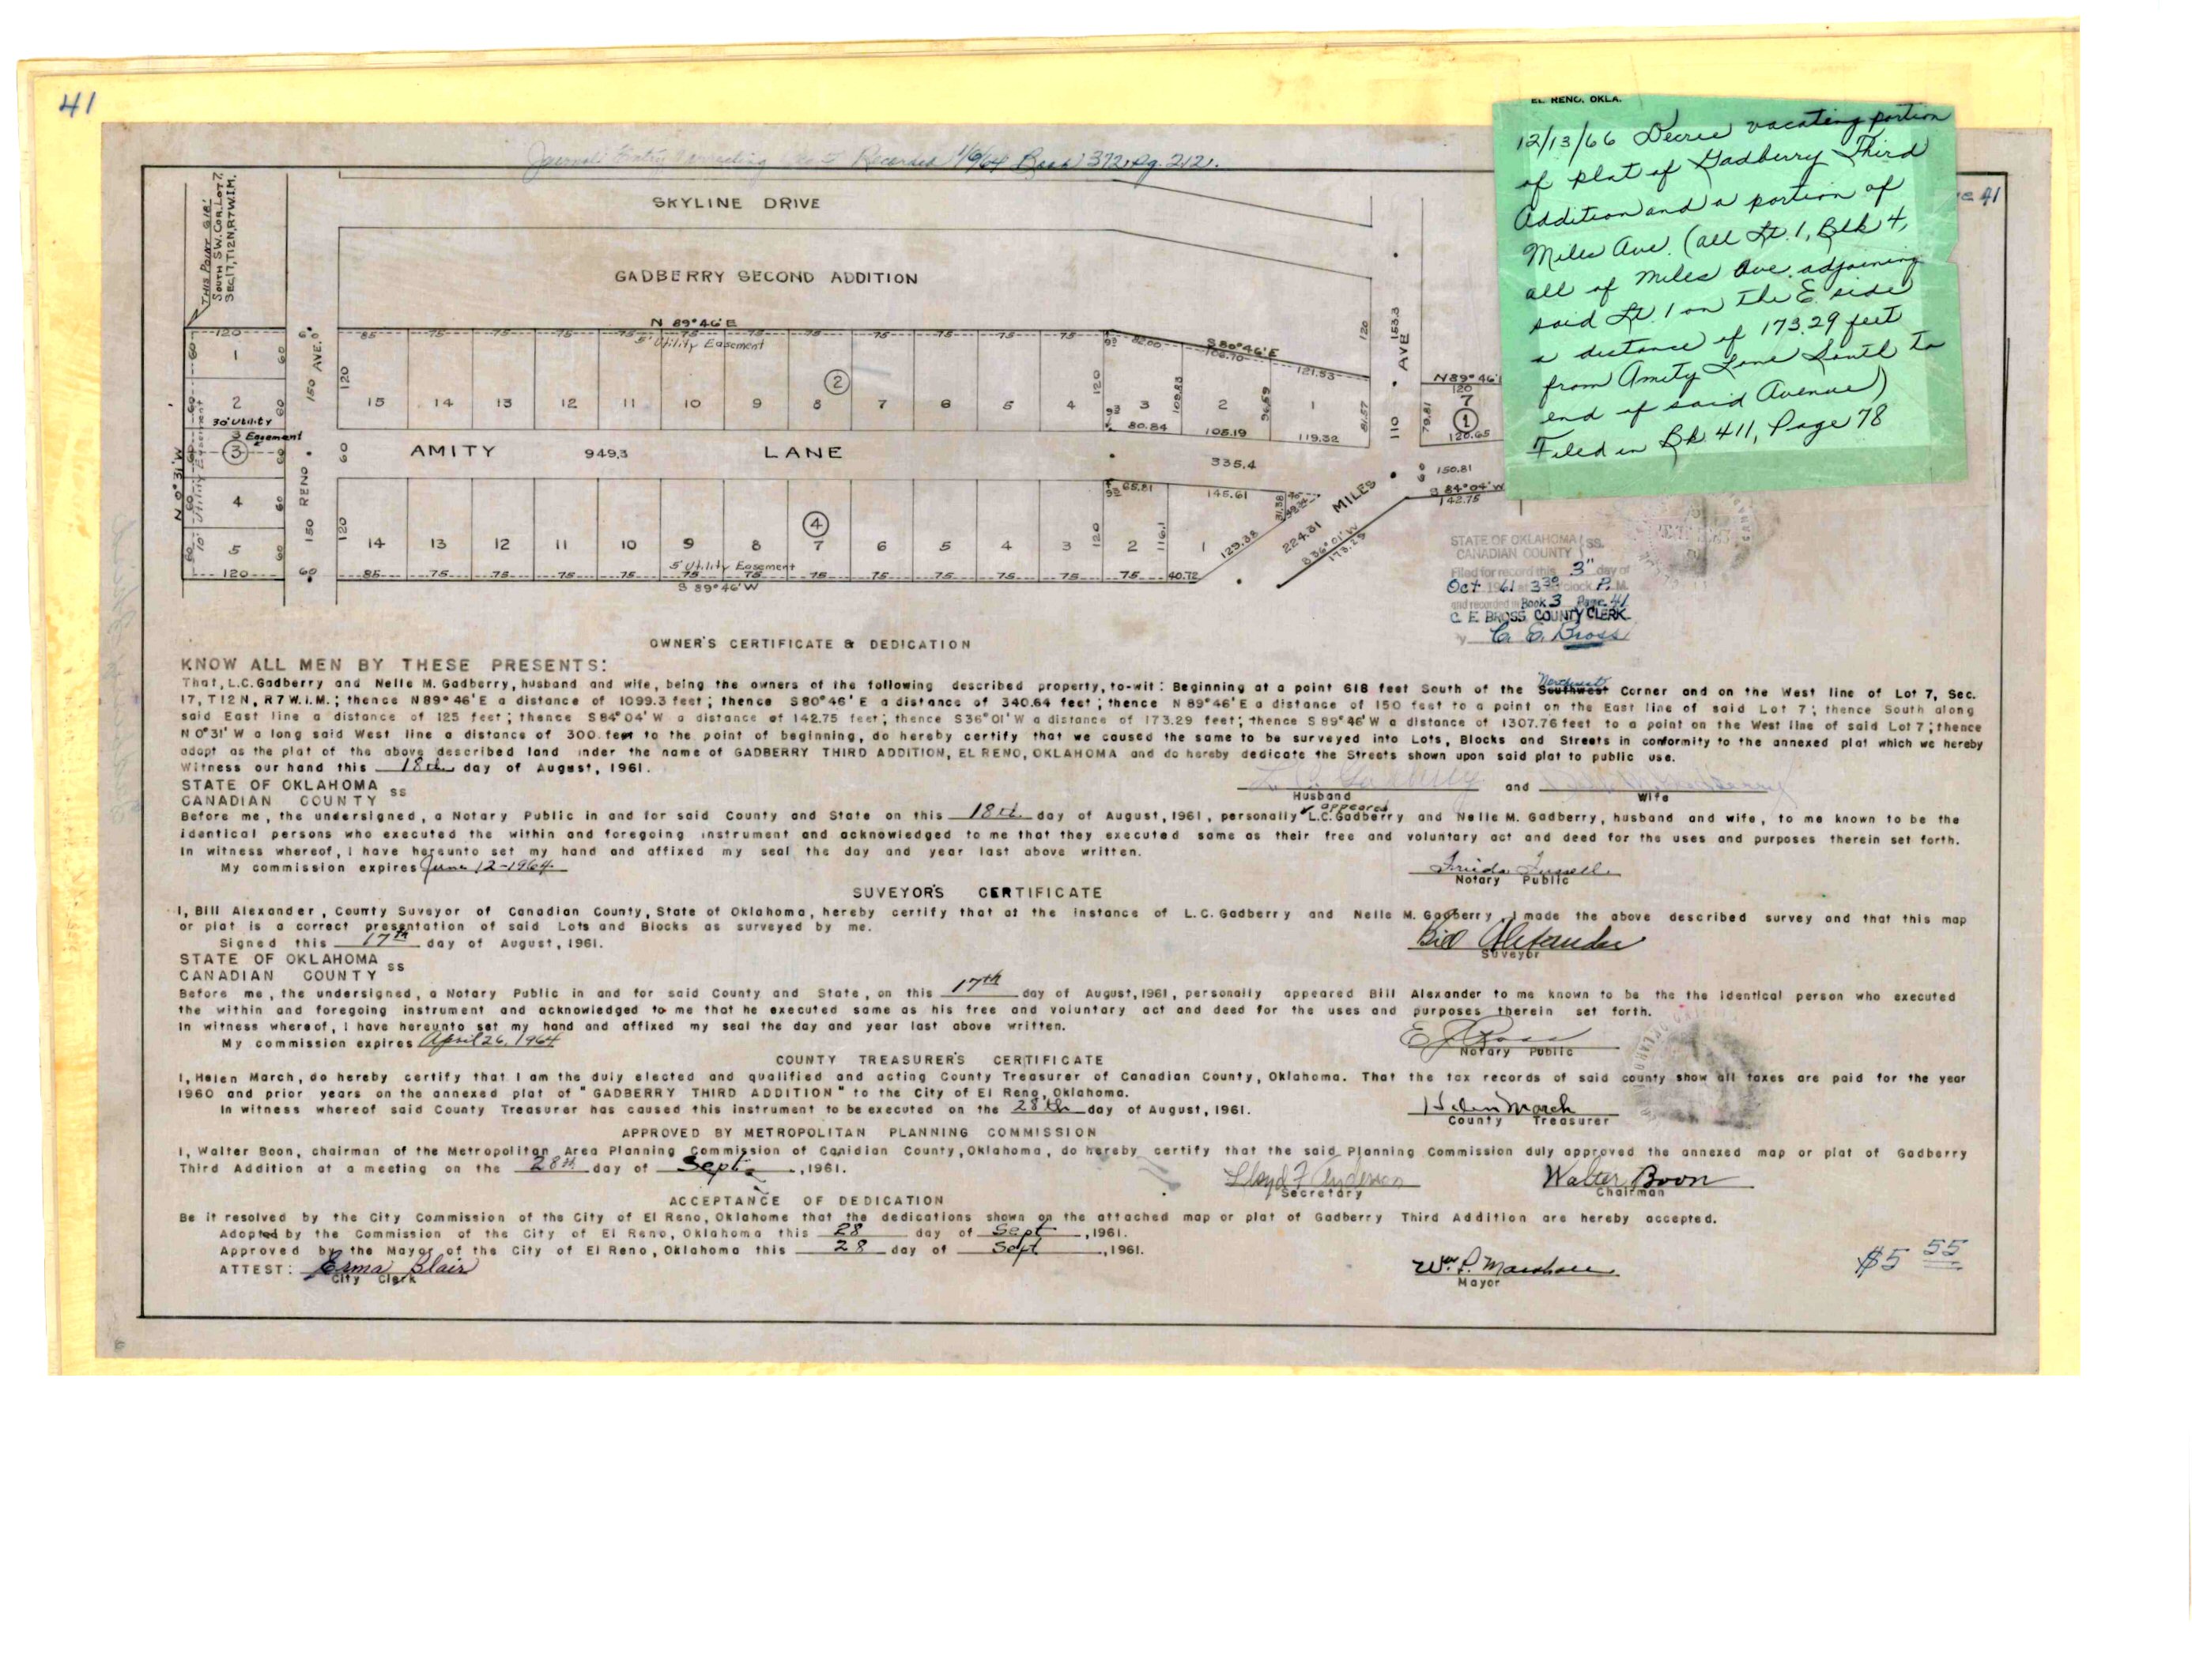 41
EL RENO, OKLA.
12/13/66 Decree vacating portion
of plat of Gadberry Third
Addition and a portion of
Miles Ave. (all Lt. 1, Blk 4,
all of Miles Ave. adjoining
said Lt. 1 on the E. side
a distance of 173.29 feet
from Amity Lane South to
end of said Avenue)
Filed in Bk 411, Page 78
Recorded 1/9/64 Book 372, Pg. 212.
41
THIS POINT 618'
SOUTH S.W. COR. LOT 7,
SEC.17, T12N, R7W.I.M.
SKYLINE DRIVE
GADBERRY SECOND ADDITION
N 89°46'E
5' Utility Easement
S 80°46'E
120 60 1 60
60 2 60
30' Utility
3 Easement
3
60 4 60
60 5 60
120
N 0°31'W
10' Utility Easement
150 AVE. 60
150 RENO 60
85 75 75 75 75 75 75 75 75 75 75 75 82.00 106.70 121.53
120 15 14 13 12 11 10 9 8 7 6 5 4 120 3 109.83 2 96.59 1 81.57
2
80.84 105.19 119.32
120 153.3
AVE
110
N 89°46'
120
7
1
79.81
120.65
60 AMITY 949.3 LANE 335.4
60 150.81
S 84°04'W
142.75
MILES
65.81 145.61
31.38
129.38
224.81
S 36°01'W
173.29
4
120 14 13 12 11 10 9 8 7 6 5 4 3 120 2 116.1 1
5' Utility Easement
85 75 75 75 75 75 75 75 75 75 75 75 75 40.72
S 89°46'W
STATE OF OKLAHOMA } SS.
CANADIAN COUNTY
Filed for record this 3" day of
Oct 1961 at 3:30 o'clock P.M.
and recorded in Book 3 Page 41
C. E. BROSS, COUNTY CLERK
y C. E. Bross
OWNER'S CERTIFICATE & DEDICATION
KNOW ALL MEN BY THESE PRESENTS:
That, L.C. Gadberry and Nelle M. Gadberry, husband and wife, being the owners of the following described property, to-wit: Beginning at a point 618 feet South of the Southwest Northwest Corner and on the West line of Lot 7, Sec.
17, T12N, R7W.I.M.; thence N89°46'E a distance of 1099.3 feet; thence S80°46'E a distance of 340.64 feet; thence N 89°46'E a distance of 150 feet to a point on the East line of said Lot 7; thence South along
said East line a distance of 125 feet; thence S84°04'W a distance of 142.75 feet; thence S36°01'W a distance of 173.29 feet; thence S 89°46'W a distance of 1307.76 feet to a point on the West line of said Lot 7; thence
N 0°31' W a long said West line a distance of 300 feet to the point of beginning, do hereby certify that we caused the same to be surveyed into Lots, Blocks and Streets in conformity to the annexed plat which we hereby
adopt as the plat of the above described land under the name of GADBERRY THIRD ADDITION, EL RENO, OKLAHOMA and do hereby dedicate the Streets shown upon said plat to public use.
Witness our hand this 18th day of August, 1961.
L. C. Gadberry and
Husband Wife
STATE OF OKLAHOMA
CANADIAN COUNTY SS
Before me, the undersigned, a Notary Public in and for said County and State on this 18th day of August, 1961, personally appeared L.C. Gadberry and Nelle M. Gadberry, husband and wife, to me known to be the
identical persons who executed the within and foregoing instrument and acknowledged to me that they executed same as their free and voluntary act and deed for the uses and purposes therein set forth.
In witness whereof, I have hereunto set my hand and affixed my seal the day and year last above written.
My commission expires June 12-1964
Notary Public
SUVEYOR'S CERTIFICATE
I, Bill Alexander, County Suveyor of Canadian County, State of Oklahoma, hereby certify that at the instance of L.C. Gadberry and Nelle M. Gadberry, I made the above described survey and that this map
or plat is a correct presentation of said Lots and Blocks as surveyed by me.
Signed this 17th day of August, 1961.
Bill Alexander
Suveyor
STATE OF OKLAHOMA
CANADIAN COUNTY SS
Before me, the undersigned, a Notary Public in and for said County and State, on this 17th day of August, 1961, personally appeared Bill Alexander to me known to be the the identical person who executed
the within and foregoing instrument and acknowledged to me that he executed same as his free and voluntary act and deed for the uses and purposes therein set forth.
In witness whereof, I have hereunto set my hand and affixed my seal the day and year last above written.
My commission expires April 26, 1964
Notary Public
COUNTY TREASURER'S CERTIFICATE
I, Helen March, do hereby certify that I am the duly elected and qualified and acting County Treasurer of Canadian County, Oklahoma. That the tax records of said county show all taxes are paid for the year
1960 and prior years on the annexed plat of "GADBERRY THIRD ADDITION" to the City of El Reno, Oklahoma.
In witness whereof said County Treasurer has caused this instrument to be executed on the 28th day of August, 1961.
Helen March
County Treasurer
APPROVED BY METROPOLITAN PLANNING COMMISSION
I, Walter Boon, chairman of the Metropolitan Area Planning Commission of Canidian County, Oklahoma, do hereby certify that the said Planning Commission duly approved the annexed map or plat of Gadberry
Third Addition at a meeting on the 28th day of Sept., 1961.
Lloyd F Anderson Walter Boon
Secretary Chairman
ACCEPTANCE OF DEDICATION
Be it resolved by the City Commission of the City of El Reno, Oklahome that the dedications shown on the attached map or plat of Gadberry Third Addition are hereby accepted.
Adopted by the Commission of the City of El Reno, Oklahoma this 28 day of Sept, 1961.
Approved by the Mayor of the City of El Reno, Oklahoma this 28 day of Sept, 1961.
ATTEST: Erma Blair
City Clerk
Wm. P. Marshall
Mayor
$5 55